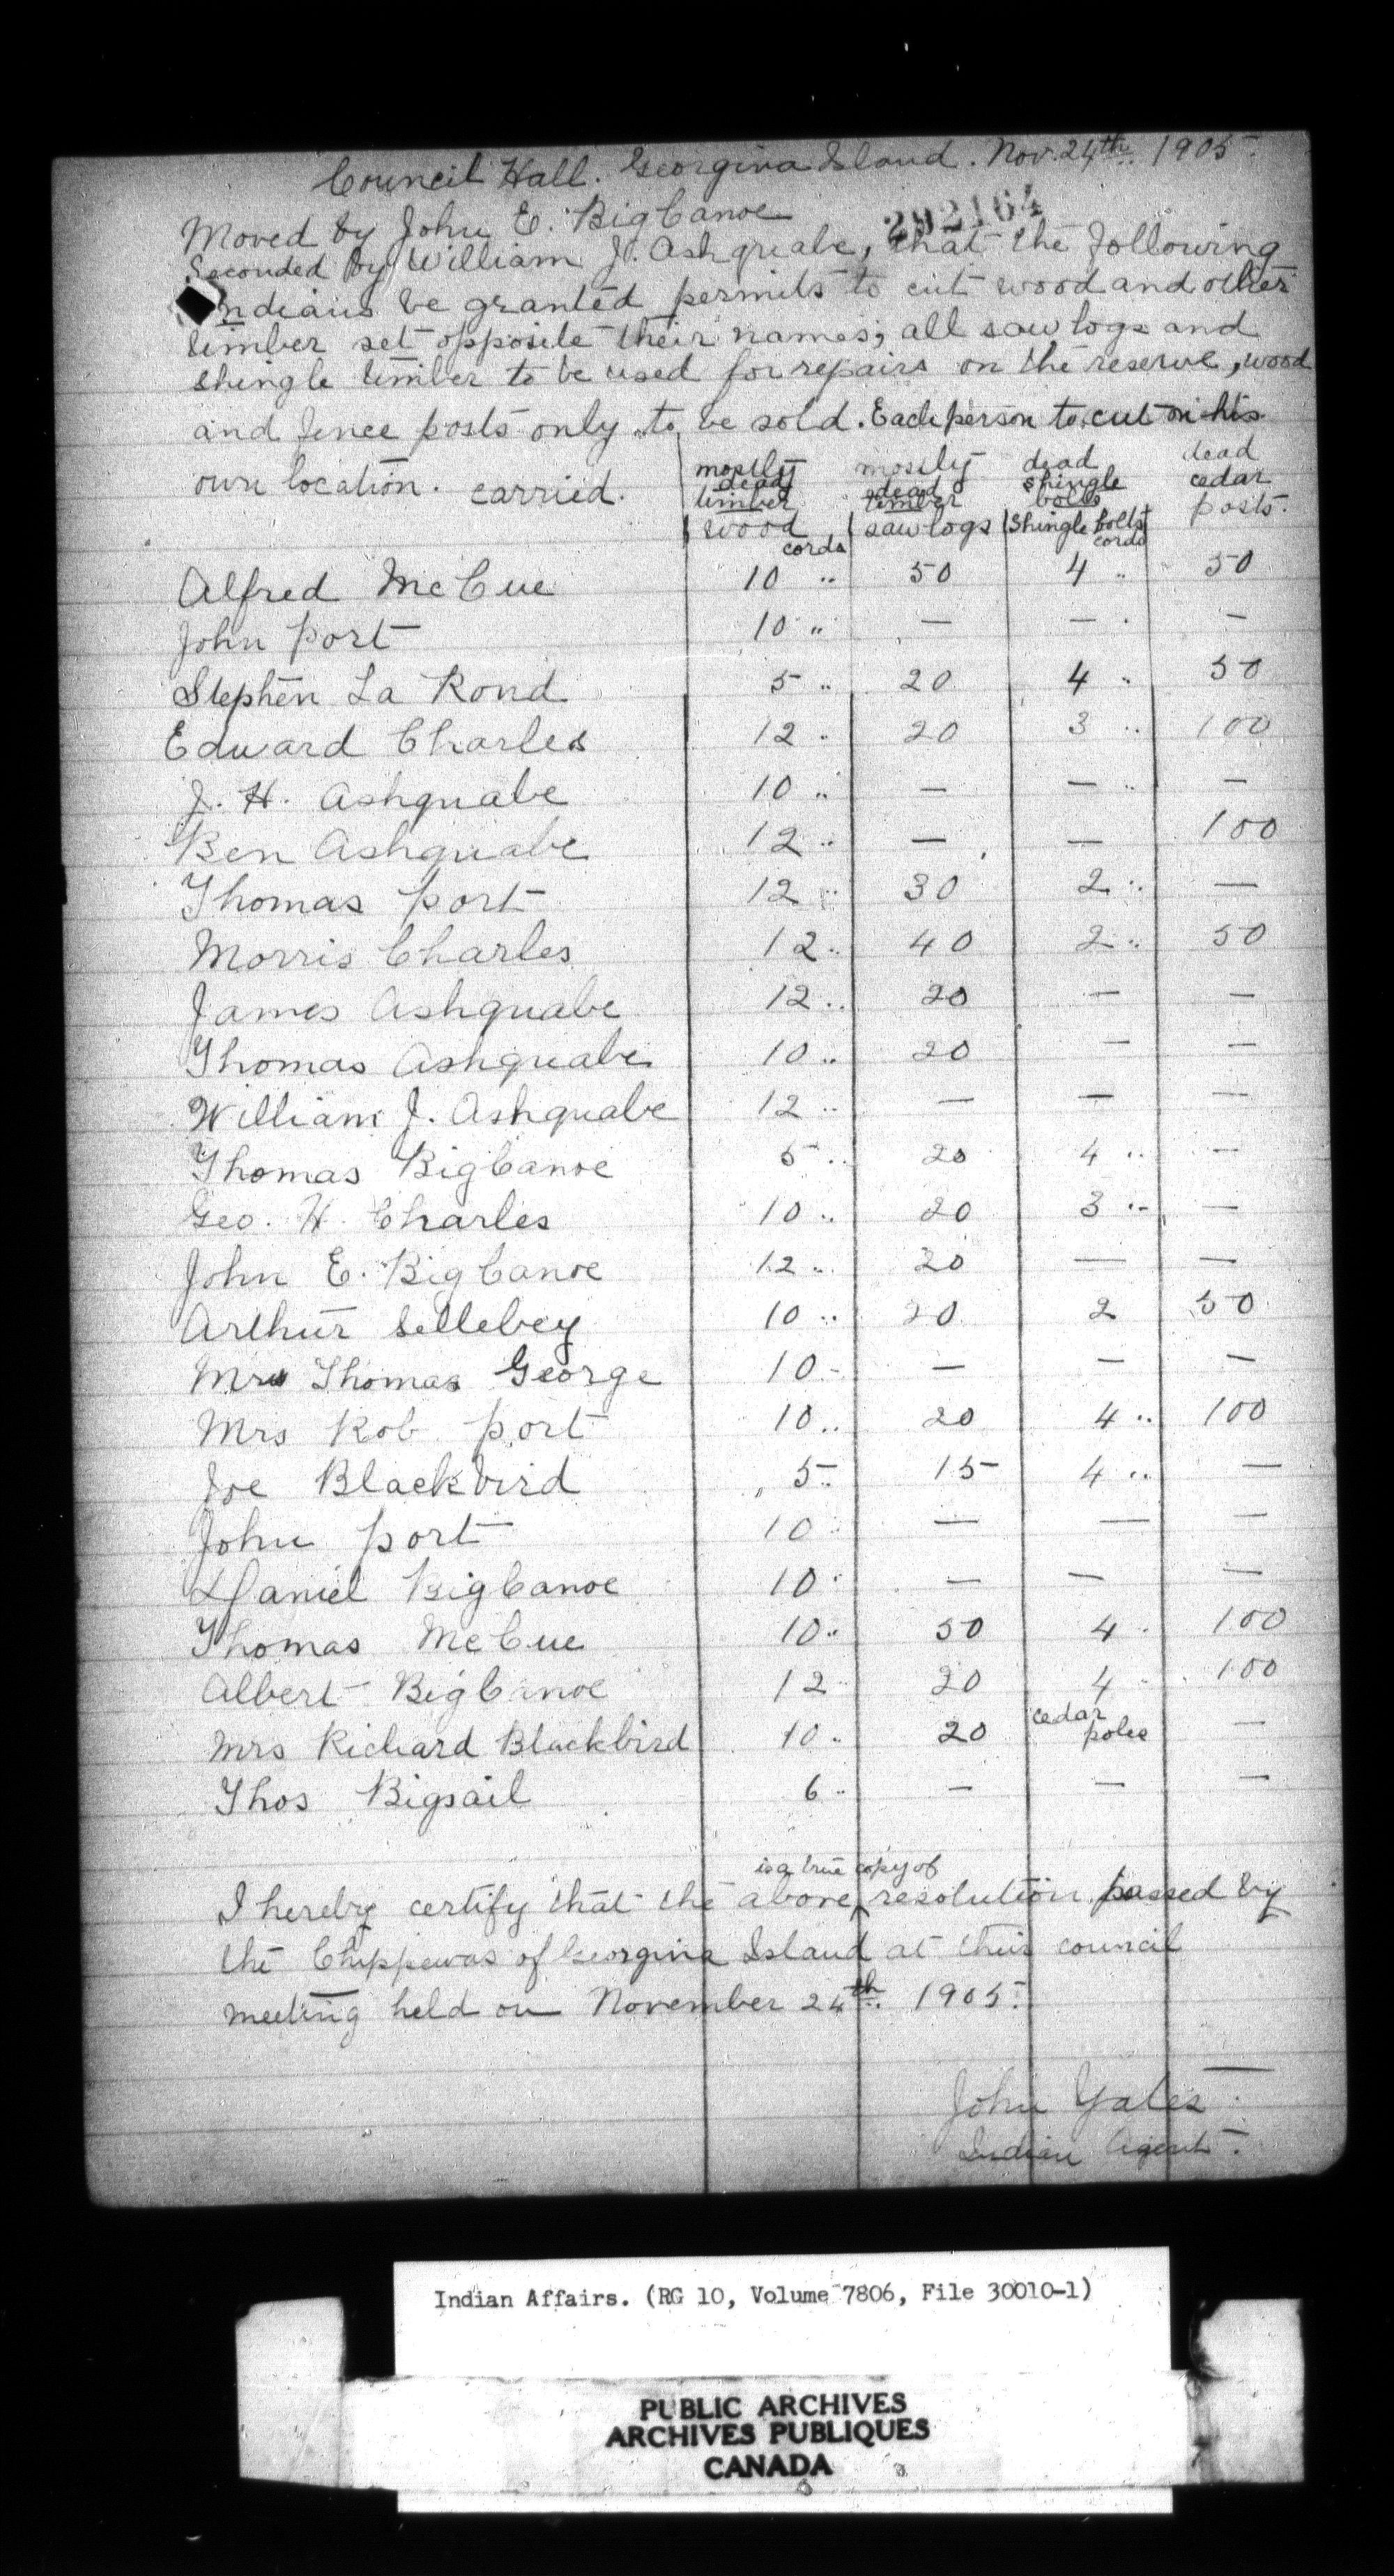 Council Hall. Georgina Island. Nov. 24th. 1905.
292164
Moved by John E. BigCanoe
Seconded by William J. Ashquabe, that the following
Indians be granted permits to cut wood and other
timber set opposite their names; all saw logs and
shingle timber to be used for repairs on the reserve, wood
and fence posts only to be sold. Each person to cut on his
own location. carried.
mostly dead timber wood cords | mostly dead timber saw logs | dead shingle bolts Shingle bolts cords | dead cedar posts.
Alfred McCue 10 " 50 4 " 50
John Port 10 " — — —
Stephen La Rond 5 " 20 4 " 50
Edward Charles 12 " 20 3 " 100
J. H. Ashquabe 10 " — — " —
Ben Ashquabe 12 " — — 100
Thomas Port 12 " 30 2 " —
Morris Charles 12 " 40 2 " 50
James Ashquabe 12 " 20 — —
Thomas Ashquabe 10 " 20 — —
William J. Ashquabe 12 " — — —
Thomas BigCanoe 5 " 20 4 " —
Geo. H. Charles 10 " 20 3 " —
John E. BigCanoe 12 " 20 — —
Arthur Sillebey 10 " 20 2 50
Mrs Thomas George 10 " — — —
Mrs Rob Port 10 " 20 4 " 100
Joe Blackbird 5 " 15 4 " —
John Port 10 " — — —
Daniel BigCanoe 10 " — — —
Thomas McCue 10 " 50 4 " 100
Albert BigCanoe 12 " 20 4 " 100
Mrs Richard Blackbird 10 " 20 cedar poles —
Thos Bigsail 6 " — — —
is a true copy of
I hereby certify that the above resolution passed by
the Chippewas of Georgina Island at their council
meeting held on November 24th. 1905.
John Yates
Indian Agent.
Indian Affairs. (RG 10, Volume 7806, File 30010-1)
PUBLIC ARCHIVES
ARCHIVES PUBLIQUES
CANADA